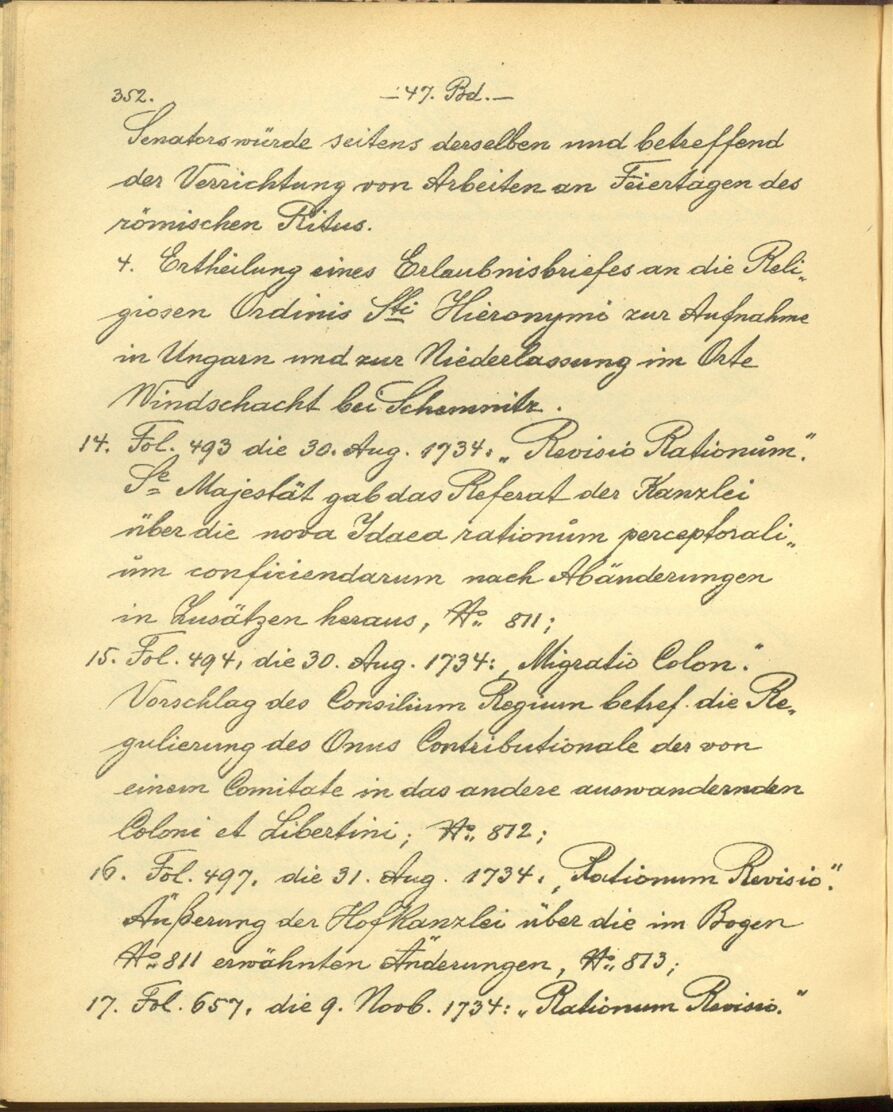 352. — 47. Bd. —
Senatorswürde seitens derselben und betreffend
der Verrichtung von Arbeiten an Feiertagen des
römischen Ritus.
4. Ertheilung eines Erlaubnisbriefes an die Reli„
giosen Ordinis Sti Hieronymi zur Aufnahme
in Ungarn und zur Niederlassung im Orte
Windschacht bei Schemnitz.
14. Fol. 493 die 30. Aug. 1734: „Revisio Rationům“.
Se Majestät gab das Referat der Kanzlei
über die nova Idaea rationům perceptorali„
ům conficiendarum nach Abänderungen
in Zusätzen heraus, No. 811;
15. Fol. 494, die 30. Aug. 1734: „Migratio Colon.“
Vorschlag des Consilium Regium betref. die Re„
gulierung des Onus Contributionale der von
einem Comitate in das andere auswandernden
Coloni et Libertini; No. 812;
16. Fol. 497, die 31. Aug. 1734: „Rationum Revisio“.
Äußerung der Hofkanzlei über die im Bogen
No. 811 erwähnten Änderungen, No. 813;
17. Fol. 657, die 9. Novb. 1734: „Rationum Revisio.“